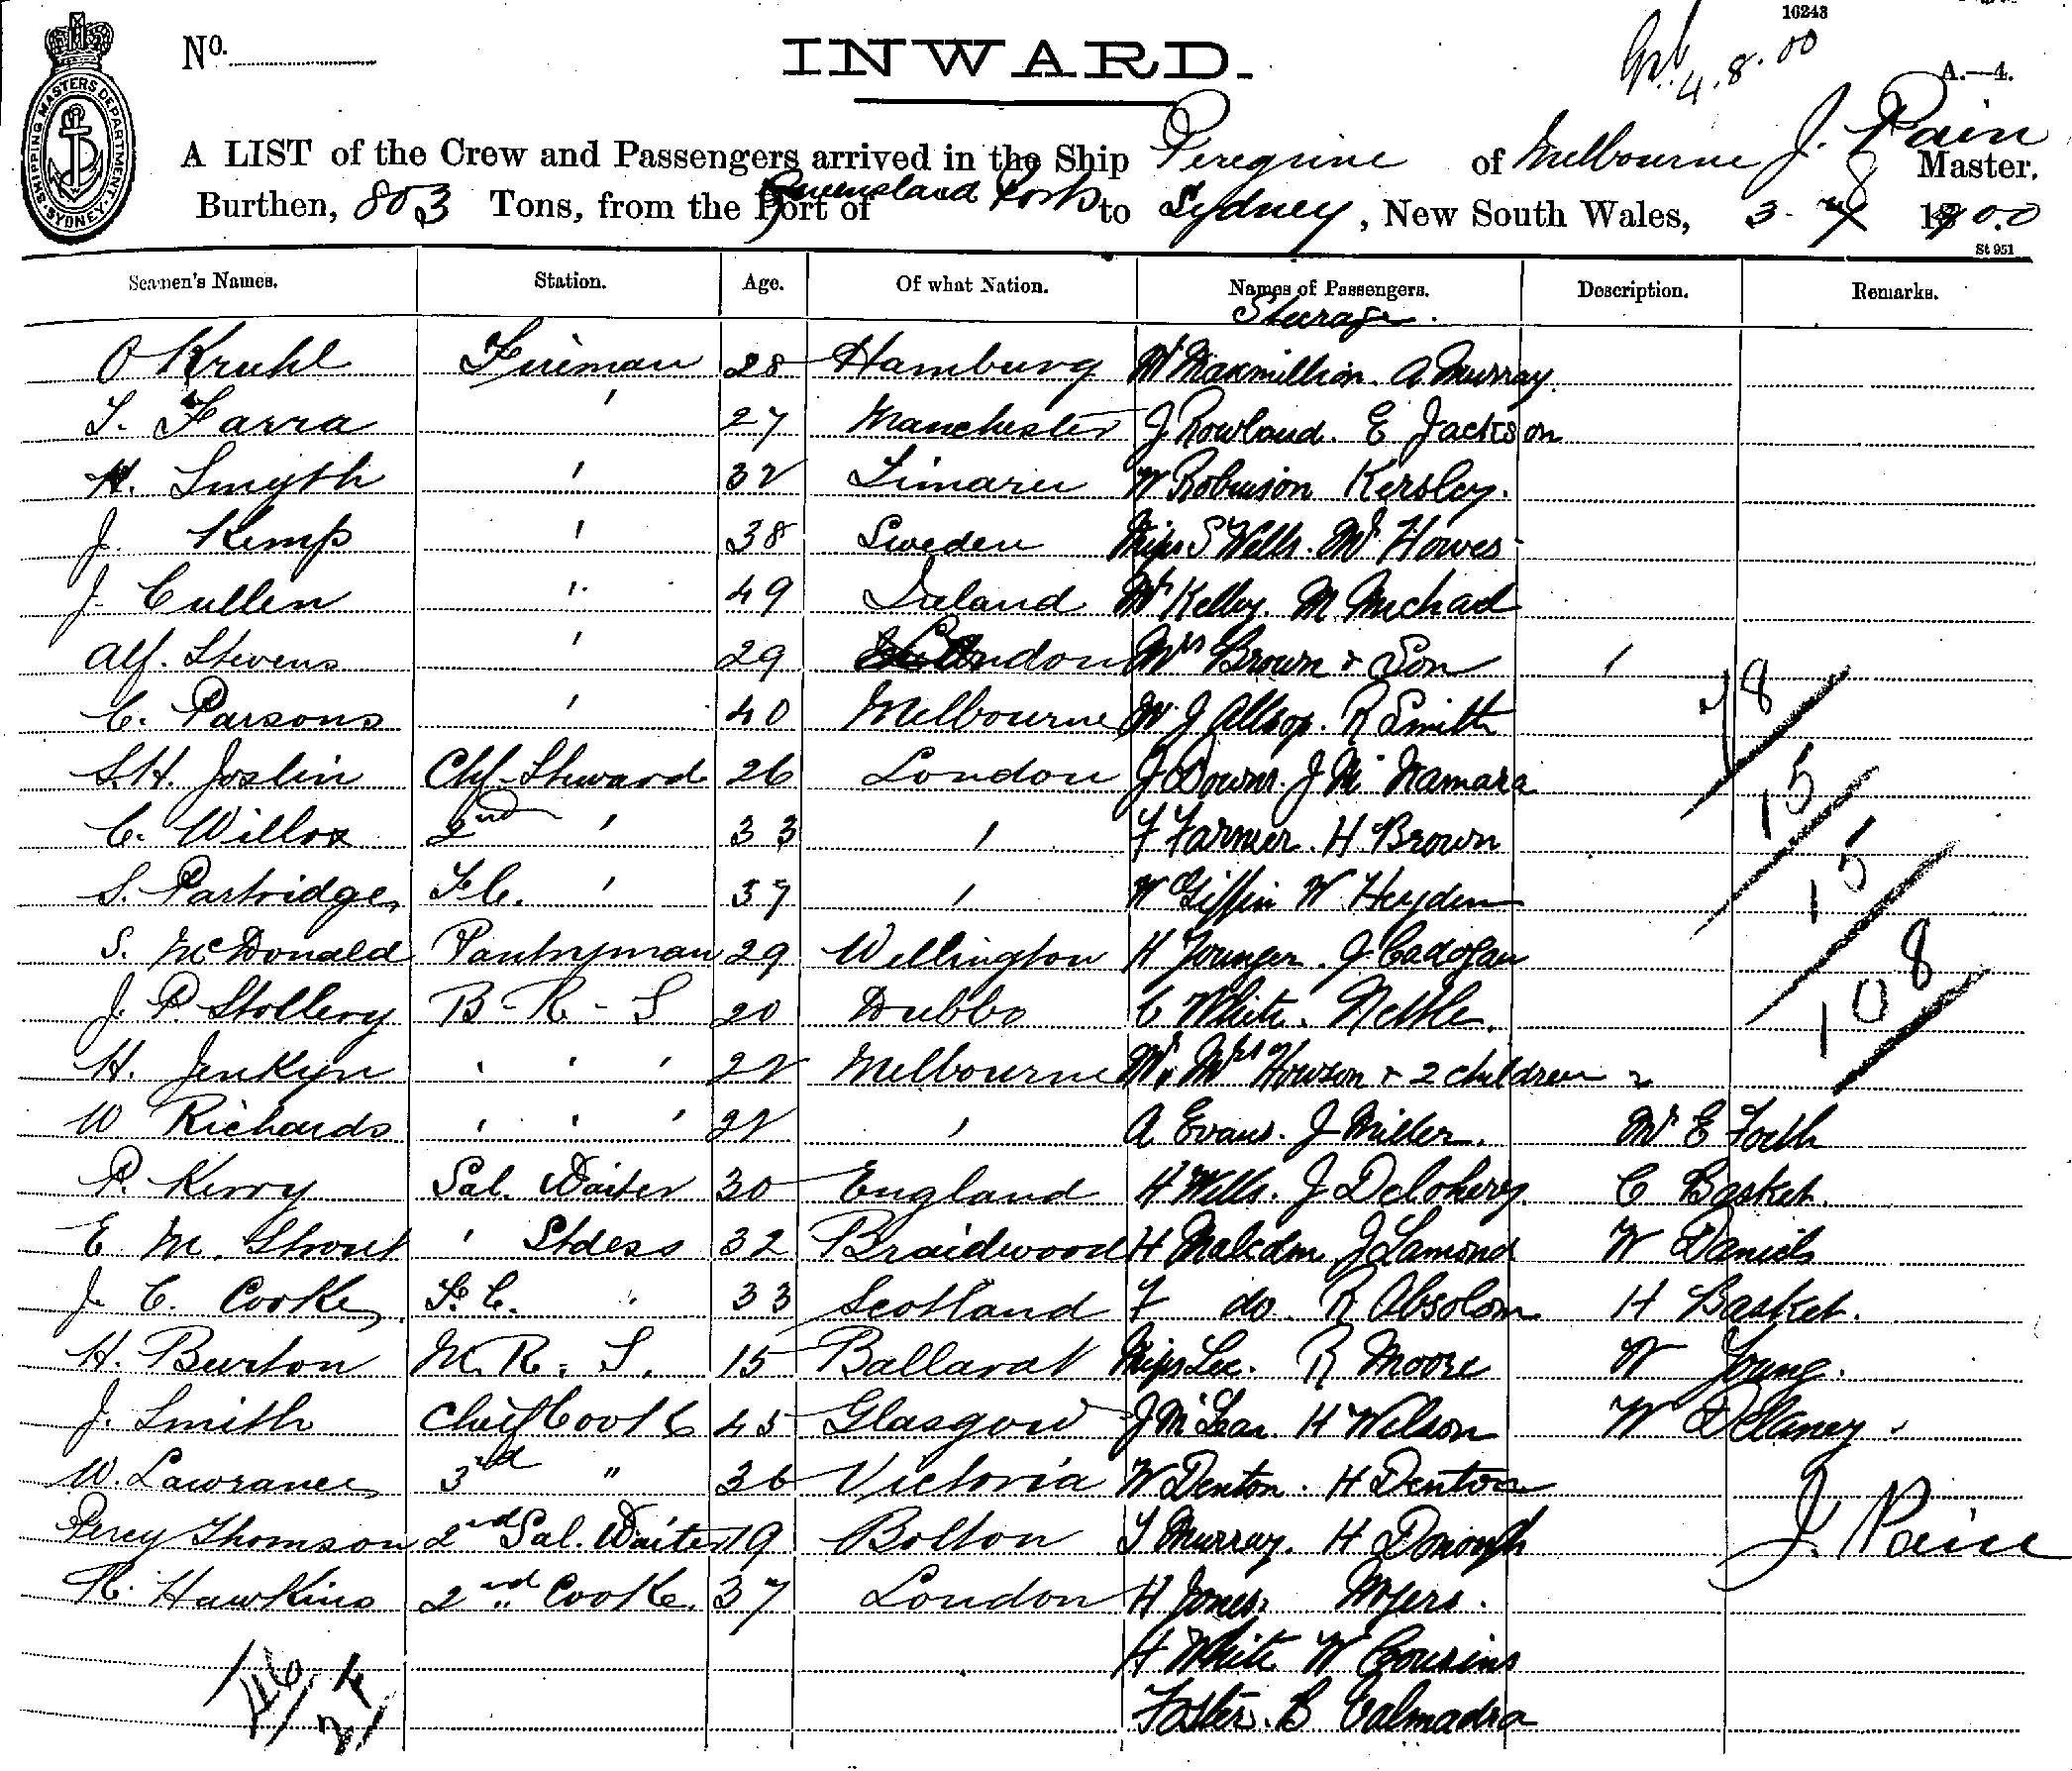 16243
4.8.00
No.
INWARD.
A.—4.
SHIPPING MASTERS DEPARTMENT. SYDNEY.
A LIST of the Crew and Passengers arrived in the Ship Peregrine of Melbourne J. Pain Master.
Burthen, 803 Tons, from the Port of Queensland Ports to Sydney, New South Wales, 3 - 8 1900
St 951
Seamen's Names. Station. Age. Of what Nation. Names of Passengers. Description. Remarks.
Steerage.
O Kruhl Fireman 28 Hamburg Mr Maxmillion. A Murray.
T. Farra ' 27 Manchester J Rowland. E Jackson
H. Smyth ' 32 Timaru W Robinson Kersley.
J. Kemp ' 38 Sweden Miss S Wells. Mr Howes
J. Cullen ' 49 Ireland Mr Kelly. M Michael
Alf. Stevens ' 29 London Mrs Brown & Son 1
C. Parsons ' 40 Melbourne Mr J Allsop. R Smith
S.H. Joslin Chf. Steward 26 London J Downs. J McNamara
C. Willox 2nd ' 33 ' F Farmer. H Brown
S. Partridge F.C. ' 37 ' W Giffin W Heyden
S. McDonald Pantryman 29 Wellington H Younger. J Cadogan
J. P. Stollery B - R - S 20 Dubbo C White. Nettle.
H. Jenkyn ' ' ' 22 Melbourne Mr & Mrs Howson & 2 children 2
W Richards ' ' ' 22 ' A Evans. J Miller. Mr E Foth
P. Kerry Sal. Waiter 30 England H Wells. J Delohery. C Basket.
E M. Shout ' Stdess 32 Braidwood H Malcolm J Lamond W Daniels
J. C. Cooke F.C. " 33 Scotland F do. R Absolom H Basket.
H. Burton M. R. S. 15 Ballarat Miss Lee. R Moore W Young.
J. Smith Chief Cook 45 Glasgow J McLean. H Wilson W Delaney.
W. Lawrance 3rd " 36 Victoria W Denton. H Denton
Percy Thomson 2nd Sal. Waiter 19 Bolton T Murray. H Donough
R. Hawkins 2nd Cooke. 37 London H Jones. Myers.
H White W Cousins
Foster. B Valmadra
18
15
15
108
J. Pain
46